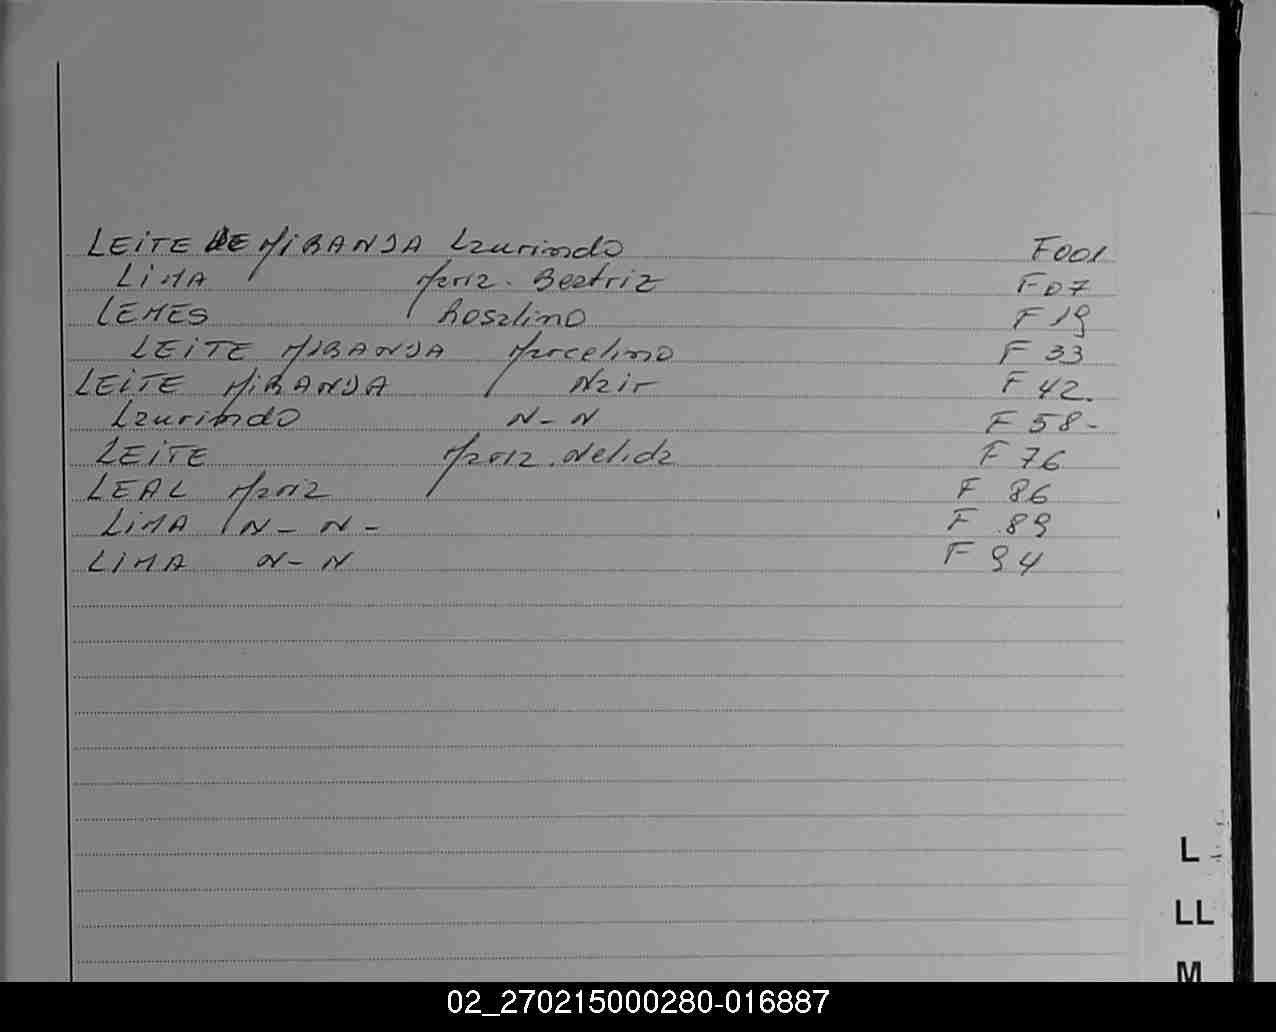 LEITE DE MIRANDA Laurindo F001
LIMA Maria. Beatriz F07
LEMES Roselino F 19
LEITE MIRANDA Marcelino F 33
LEITE MIRANDA Nair F 42.
Laurindo N-N F 58-
LEITE Maria. Nelida F 76
LEAL Maria F 86
LIMA N- N- F 89
LIMA N-N F 94
L
LL
M
02_270215000280-016887